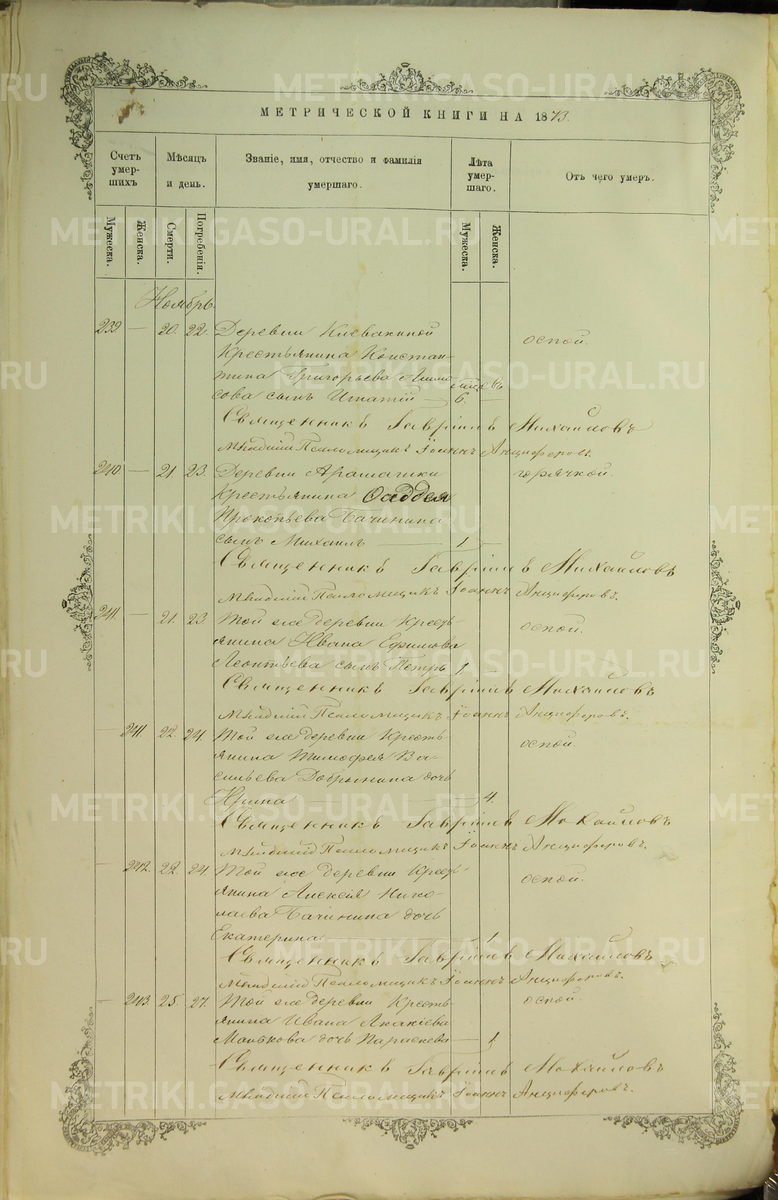 МЕТРИЧЕСКОЙ КНИГИ НА 1873.
Счетъ умер-шихъ
Мѣсяцъ и день.
Званіе, имя, отчество и фамилія умершаго.
Лѣта умер-шаго.
Отъ чего умеръ.
Мужеска.
Женска.
Смерти.
Погребенія.
Мужеска.
Женска.
Ноябрь.
239 — 20. 22. Деревни Клевакиной оспой.
Крестьянина Констан-
тина Григорьева
сова сынъ Игнатій — 6.
Священникъ Гавріилъ Михайловъ
Младшій Псаломщикъ Іоаннъ Анциферовъ.
240 — 21 23. Деревни Арамашки горячкой.
Крестьянина Фаддея
Прокопьева Бачинина
сынъ Михаилъ — 1 —
Священникъ Гавріилъ Михайловъ
Младшій Псаломщикъ Іоаннъ Анциферовъ.
241. — 21. 23. Той же деревни Кресть- оспой.
янина Ивана Ефимова
Леонтьева сынъ Петръ 1 —
Священникъ Гавріилъ Михайловъ
Младшій Псаломщикъ Іоаннъ Анциферовъ.
— 241. 22. 24. Той же деревни Кресть- оспой.
янина Тимофея Ва-
сильева Добрынина дочь
Ирина — 4.
Священникъ Гавріилъ Михайловъ
Младшій Псаломщикъ Іоаннъ Анциферовъ.
— 242. 22. 24. Той же деревни Кресть- оспой.
янина Алексѣя Нико-
лаева Бачинина дочь
Екатерина — 1.
Священникъ Гавріилъ Михайловъ
Младшій Псаломщикъ Іоаннъ Анциферовъ.
— 243. 25. 27. Той же деревни Кресть- оспой.
янина Ивана Акакіева
Манькова дочь Параскева — 1
Священникъ Гавріилъ Михайловъ
Младшій Псаломщикъ Іоаннъ Анциферовъ.
METRIKI.GASO-URAL.RU